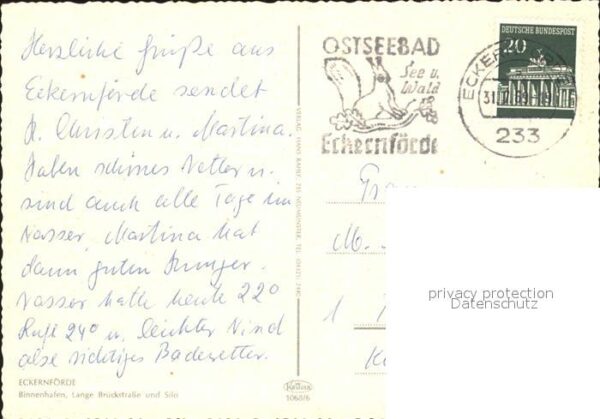 Herzliche Grüße aus
Eckernförde sendet
H. Christen u. Martina.
Haben schönes Wetter u.
sind auch alle Tage im
Wasser, Martina hat
dann guten Hunger.
Wasser hatte heute 22°
Luft 24° u. leichter Wind
also richtiges Badewetter.
ECKERNFÖRDE
Binnenhafen, Lange Brückstraße und Silo
OSTSEEBAD
See u.
Wald
Eckernförde
DEUTSCHE BUNDESPOST
20
ECKERNF
233
Frau
M.
1
1068/6
privacy protection
Datenschutz